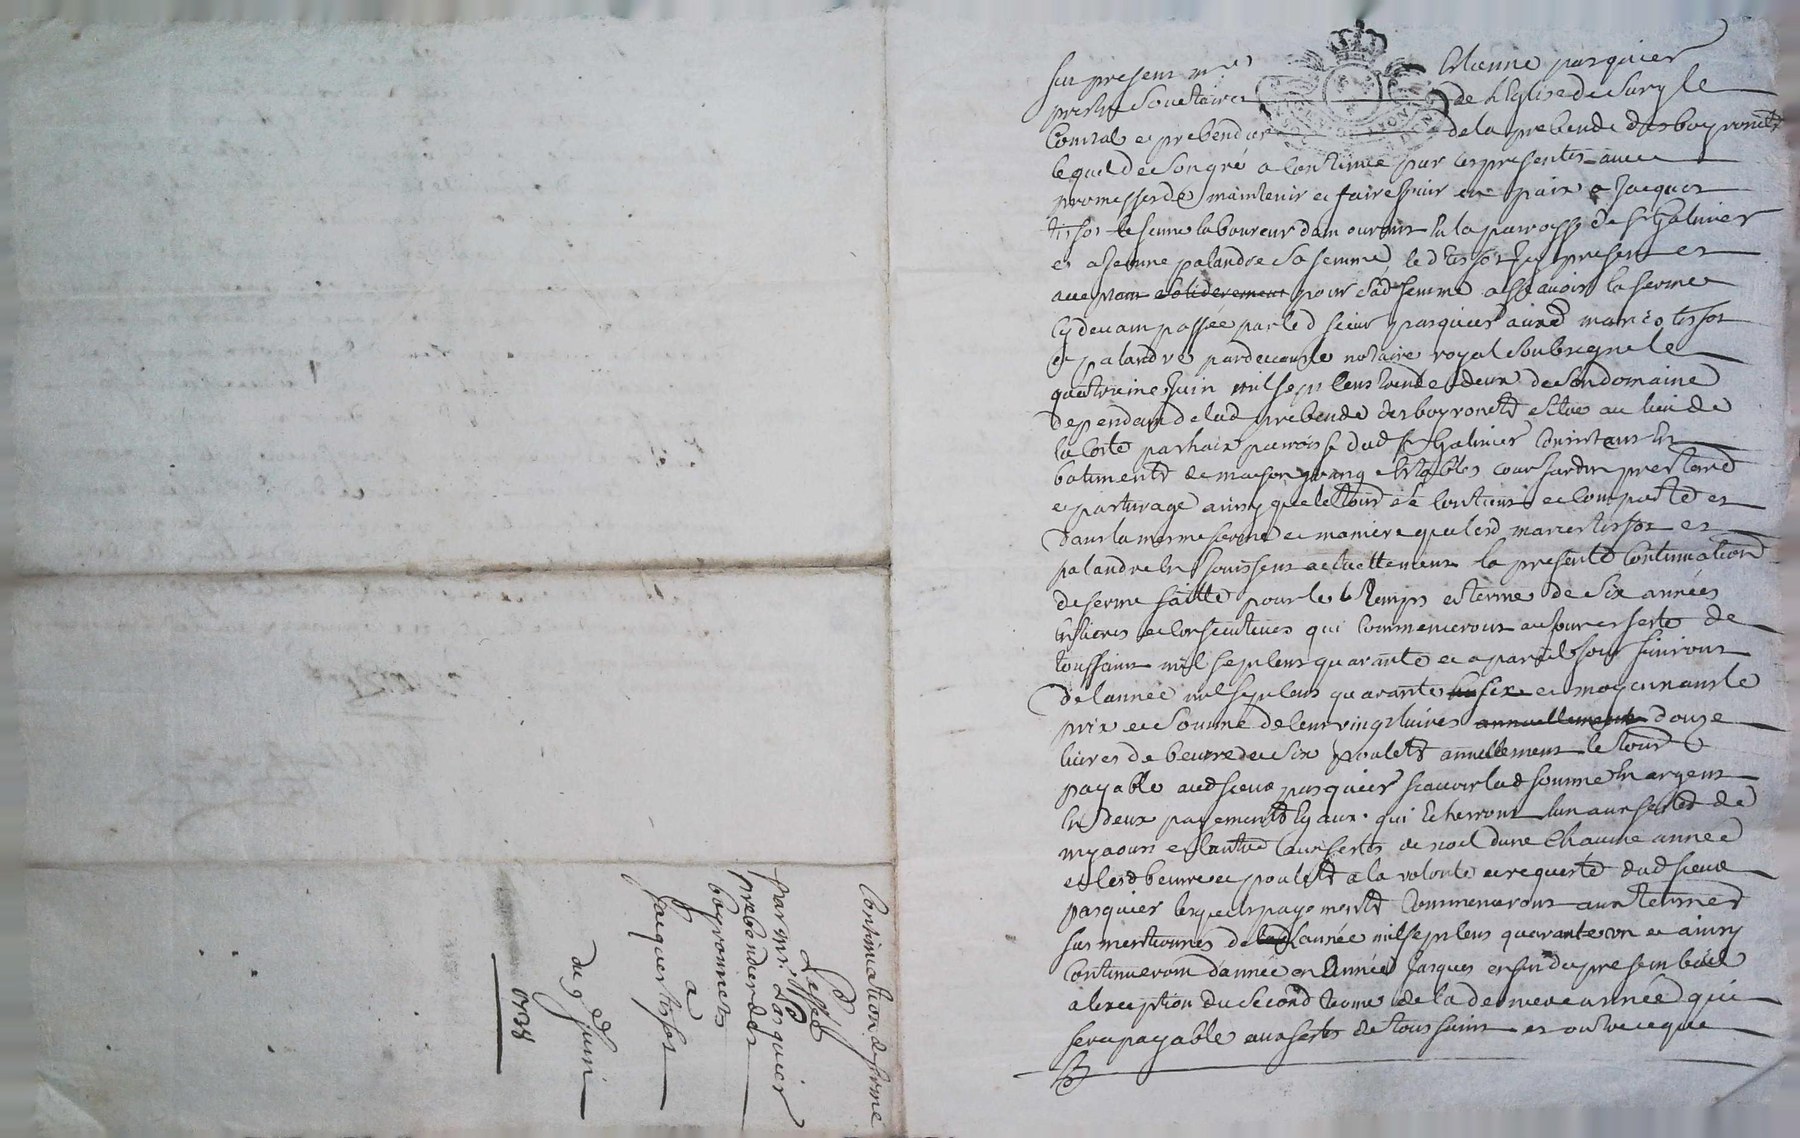 fut present mre Etienne pasquier
prestre Societaire de L'Eglise de Sury le
Comtal et prebendier de la prebende des boyronnets
lequel de son gré a Continué par les presentes avec
promesse de maintenir et faire jouir en paix a Jacques
tissot le jeune laboureur dam en la parroisse de St Galmier
et a Jeanne palandre Sa femme led tissot icy present et
acceptant solidairement pour Sad femme a scavoir la ferme
cy devant passée par led sieur pasquier aux d marcé tissot
et palandre pardevant le notaire royal Soubsigne le
quatorzieme Juin mil sept Cens trente deux de Son domaine
dependant de lad prebende des boyronets situé au lieu de
la Coste parroisse dud St Galmier Consistant En
batiments de maison grange Estables cour Jardin pres terre
et pasturage ainsy que le tout se Contient et Comporte et
dans la mesme forme et maniere que lesd marcé tissot et
palandre En jouissent actuellement la presente Continuation
de ferme faitte pour le temps et terme de Six années
Entieres et Consecutives qui Commenceront au jour et feste de
toussaint mil sept Cens quarante et a pareil jour finiront
de l'année mil sept Cens quarante six et moyennant le
prix et Somme de Cent vingt livres annuellement douze
livres de beurre et Six poulets annuellement le tout
payable aud sieur pasquier scavoir lad somme En argent
En deux payements Egaux qui Echerront lun aux festes de
my aoust et lautre aux festes de noel dune Chacune année
et lesd beurre et poulets a la volonté et requeste dud sieur
pasquier lesquels payements Commenceront aux termes
sus mentionnes de lad lannée mil sept Cens quarante un et ainsy
Continueront dannée en Année Jusques en fin du present bail
a lexception du Second terme de la derniere année qui
sera payable aux festes de toussaint et outre ce que
Continuation de ferme
passée
par mre Pasquier
prebendier des
boyronnets
a
Jacques tissot
du 9e Juin
1738